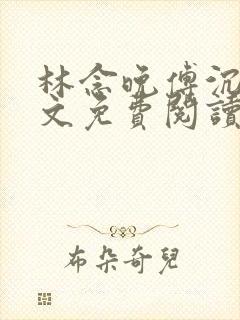 林念晚傅沉
文免費閱讀
布朵奇兒